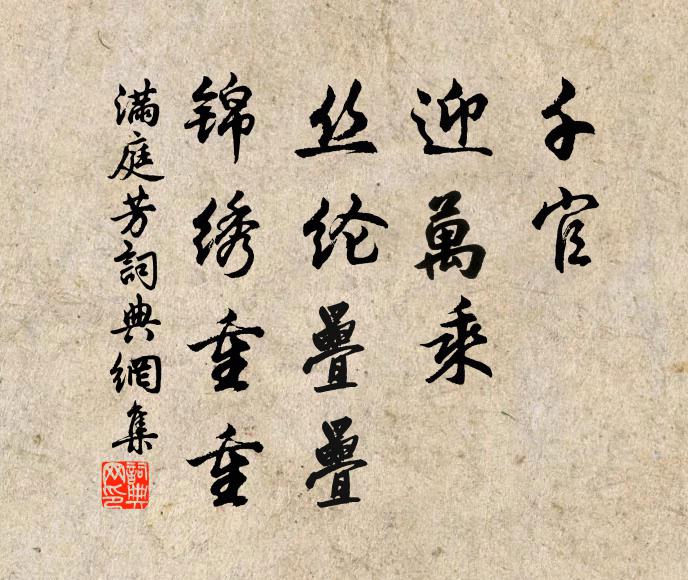 千官
迎萬乘
丝纶疊疊
锦绣重重
满庭芳詞典網集
詞典网印